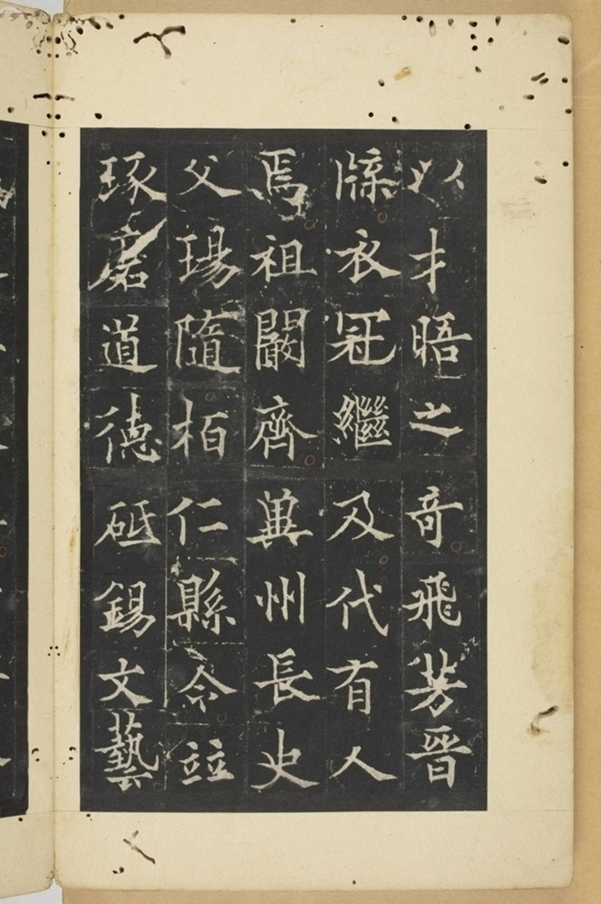 以才晤之奇飛芳晉
牒衣冠繼及代有人
焉祖闞齊兾州長史
父瑒隨栢仁縣令竝
琢磨道德砥錫文藝